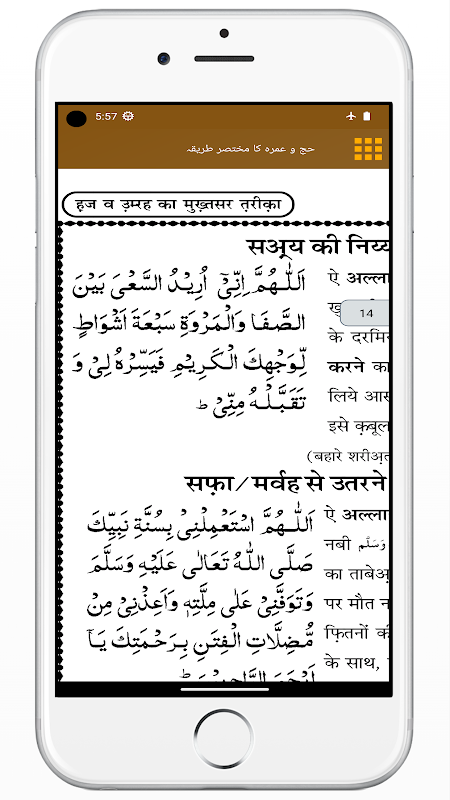 5:57
حج و عمرہ کا مختصر طریقہ
ह़ज व उ़म्रह का मुख़्तसर त़रीक़ा
सअ्य की निय्य
اَللّٰهُمَّ اِنِّیْۤ اُرِیْدُ السَّعْیَ بَیْنَ
ऐ अल्ला
الصَّفَا وَالْمَرْوَةِ سَبْعَةَ اَشْوَاطٍ
14
के दरमि
لِّوَجْهِكَ الْكَرِیْمِ فَیَسِّرْهُ لِیْ وَ
करने का
تَقَبَّلْهُ مِنِّیْ ط
लिये आस
इसे क़बूल
(बहारे शरीअ़त
सफ़ा/मर्वह से उतरने
اَللّٰهُمَّ اسْتَعْمِلْنِیْ بِسُنَّةِ نَبِیِّكَ
ऐ अल्ला
صَلَّی اللّٰهُ تَعَالٰی عَلَیْهِ وَسَلَّمَ
नबी وَسَلَّم
का ताबेअ़
وَتَوَفَّنِیْ عَلٰی مِلَّتِهٖ وَاَعِذْنِیْ مِنْ
पर मौत न
مُّضِلَّاتِ الْفِتَنِ بِرَحْمَتِكَ یَاۤ
फ़ितनों की
के साथ,